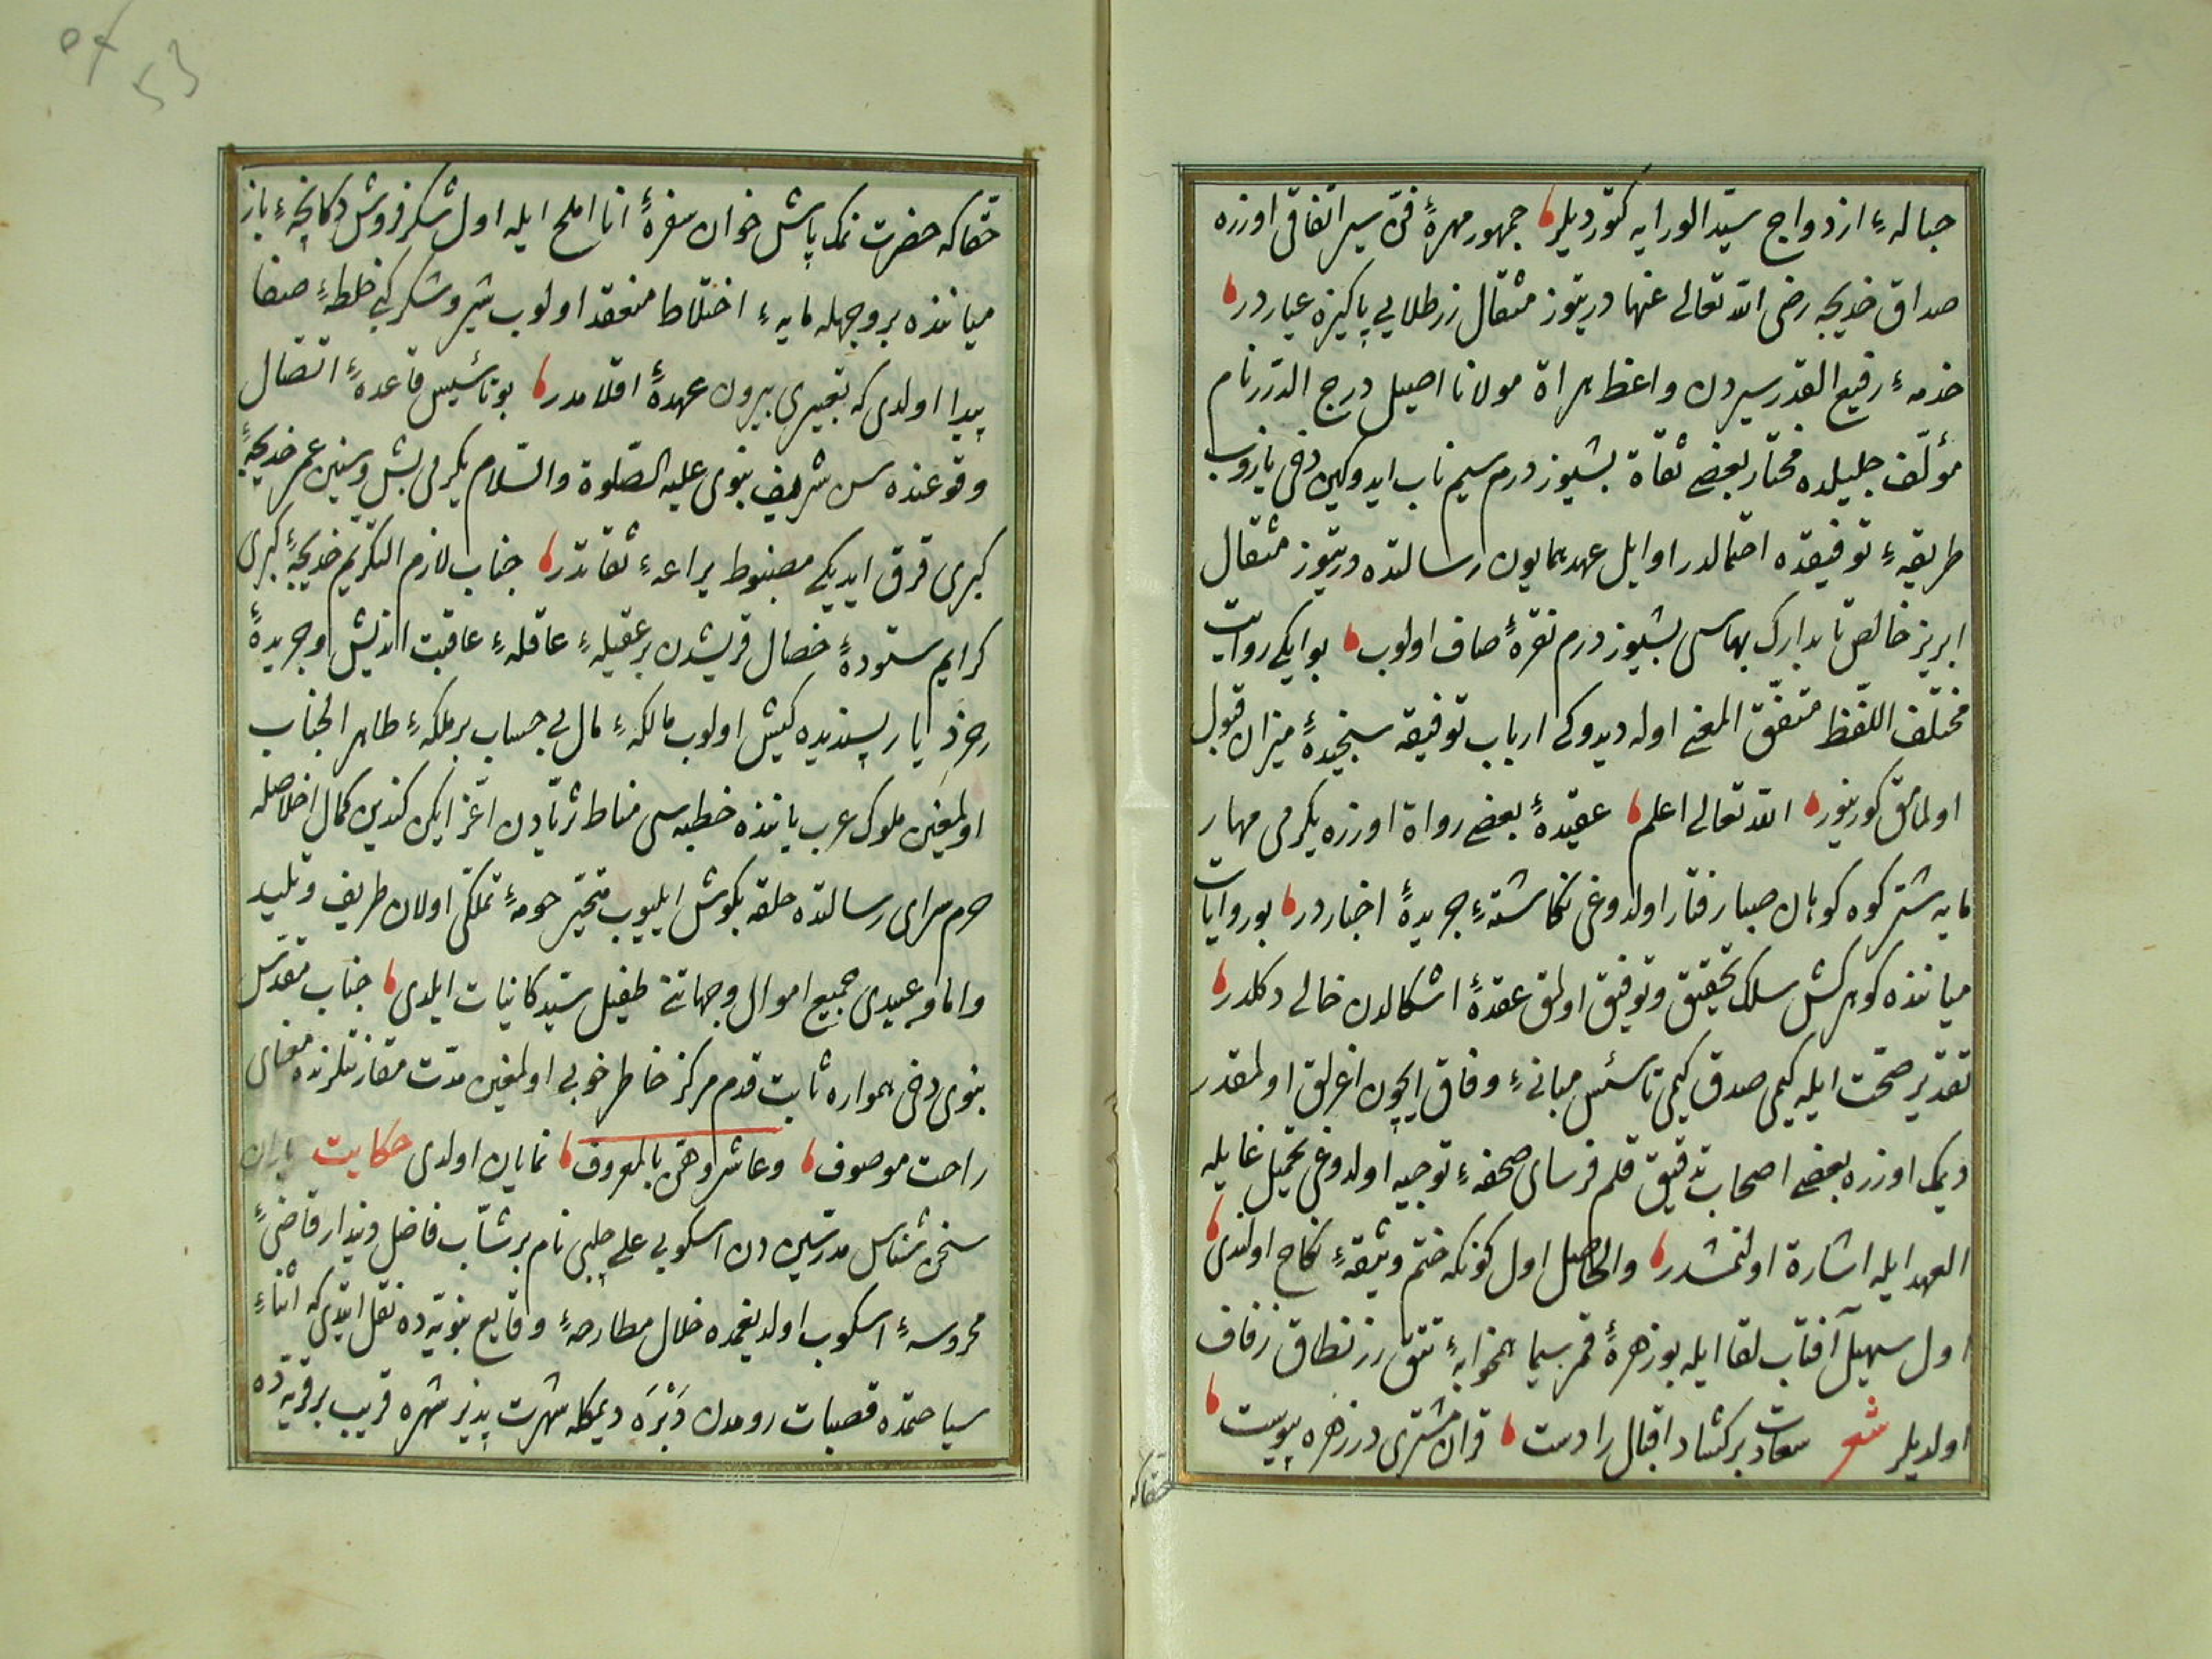 حباله‌ء ازدواج سيّد الورايه كتورديلر جمهور مهره‌ٔ فنّ سير اتفاقى اوزره
صداق خديجه رضى الله تعالى عنها درتيوز مثقال زر طلايى پاكيزه عياردر
خدمه‌ء رفيع القدر سيردن واعظ هراة مولانا اصيل درج الدرر نام
مؤلّف جليلده مختار بعض ثقاة بشيوز درم سيم ناب ايدوكين دخى يازوب
طريقه‌ء توفيقده احتمالدر اوايل عهد همايون رسالتده درتيوز مثقال
ابريز خالص تابدارك بهاسى بشيوز درم نقره‌ٔ صاف اولوب بو ايكى روايت
مختلف اللّفظ متّفق المعنى اوله ديدوكى ارباب توفيقه سنجيده‌ٔ ميزان قبول
اولمامق كورينور الله تعالى اعلم عقيده‌ٔ بعض رواة اوزره يكرمى مهار
مايه شتر كوه كوهان صبا رفتار اولدوغى نكاشته‌ء جريده‌ٔ اخباردر بو روايات
مياننده كوهركش سلك تحقيق وتوفيق اولمق عقده‌ٔ اشكالدن خالى دكلدر
تقدير صحّت ايله كيمى صدق كيمى تأسيس مبانى‌ء وفاق ايچون اغرلق اولمقدر
ديمك اوزره بعض اصحاب تدقيق قلم فرساى صحفه‌ء توجيه اولدوغى تحميل غايله
العهد ايله اشارة اولنمشدر والحاصل اول كونكه ختم وثيقه‌ء نكاح اولندى
اول سهيل آفتاب لقا ايله بو زهره‌ٔ قمر سيما همخوابه‌ٔ تتق زر نطاق زفاف
اولديلر شعر سعادت بركشاد اقبال را دست قران مشترى در زهره پيوست
حقّاكه
حقّاكه حضرت نمك پاش خوان سفره‌ٔ انا املح ايله اول شكر فروش دكانچه‌ء ياز
مياننده بر وجهله مايه‌ء اختلاط منعقد اولوب شير وشكر كبى خلطه‌ء صفا
پيدا اولدى كه تعبيرى بيرون عهده‌ٔ اقلامدر بو تأسيس قاعده‌ٔ اتّصال
وقوعنده سن شريف نبوى عليه الصّلوة والسّلام يكرمى بش وسنين عمر خديجه‌ٔ
كبرى قرق ايديكى مضبوط يراعه‌ء ثقاتدر جناب لازم التكريم خديجه‌ٔ كبرى
كرايم ستوده‌ٔ خصال قريشدن بر عقيله‌ء عاقله‌ء عاقبت انديش وجريده‌ٔ
يار پسنديده كيش اولوب مالكه‌ء مال بى حساب بر ملكه‌ء طاهر الجناب
اولمغين ملوك عرب ياننده خطبه سى مناط ثريّادن اعزّ ايكن كندين كمال اخلاصله
حرم سراى رسالتده حلقه بكوش ايليوب متحيّز حومه‌ٔ تملّكى اولان طريف وتليد
واما وعبيدى جميع اموال وجهاتنه طفيل سيّد كاينات ايلدى جناب مقدّس
نبوى دخى همواره ثابت قدم مركز خاطر خوبى اولمغين مدّت مقارنتلرنده معناى
راحت موصوف وعاشروهنّ بالمعروف نمايان اولدى حكايت ياران
سخن شناس مدرّسين دن اسكوبى على چلبى نام بر شابّ فاضل ديندار قاضى‌ٔ
محروسه‌ٔ اسكوب اولديغمده خلال مطارحه‌ٔ وقايع نبويه ده نقل ايتدى كه اثناء
سياحتمده قصبات رومدن دَبْرَه ديمكله شهرت پذير شهره قريب بر قريه ده